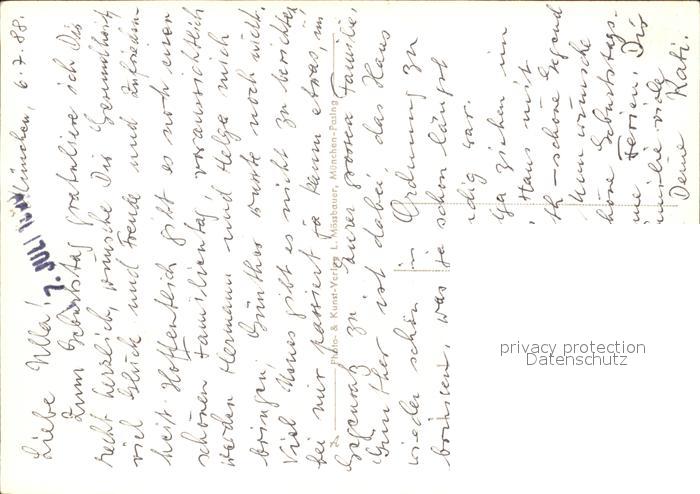 München, 6.7.88.
7. JULI
Liebe Ulla!
Zum Geburtstag gratuliere ich Dir
recht herzlich, wünsche Dir Gesundheit,
viel Glück und Freude und Zufrieden-
heit. Hoffentlich gibt es noch einen
schönen Familientag, voraussichtlich
werden Hermann und Helga mich
bringen. Günther wußte noch nicht.
Viel Neues gibt es nicht zu berichten,
bei mir passiert ja kaum etwas, im
Gegensatz zu Eurer grossen Familie,
Günther ist dabei das Haus
wieder schön in Ordnung zu
bringen, was ja schon längst
ndig war.
ga ziehen im
Haus mit
th - schöne Gegend
Nun wünsche
höne Geburtstags-
me Ferien, Dir
amilie viele
Deine Kati.
Photo- & Kunst-Verlag L. Mössbauer, München-Pasing
privacy protection
Datenschutz